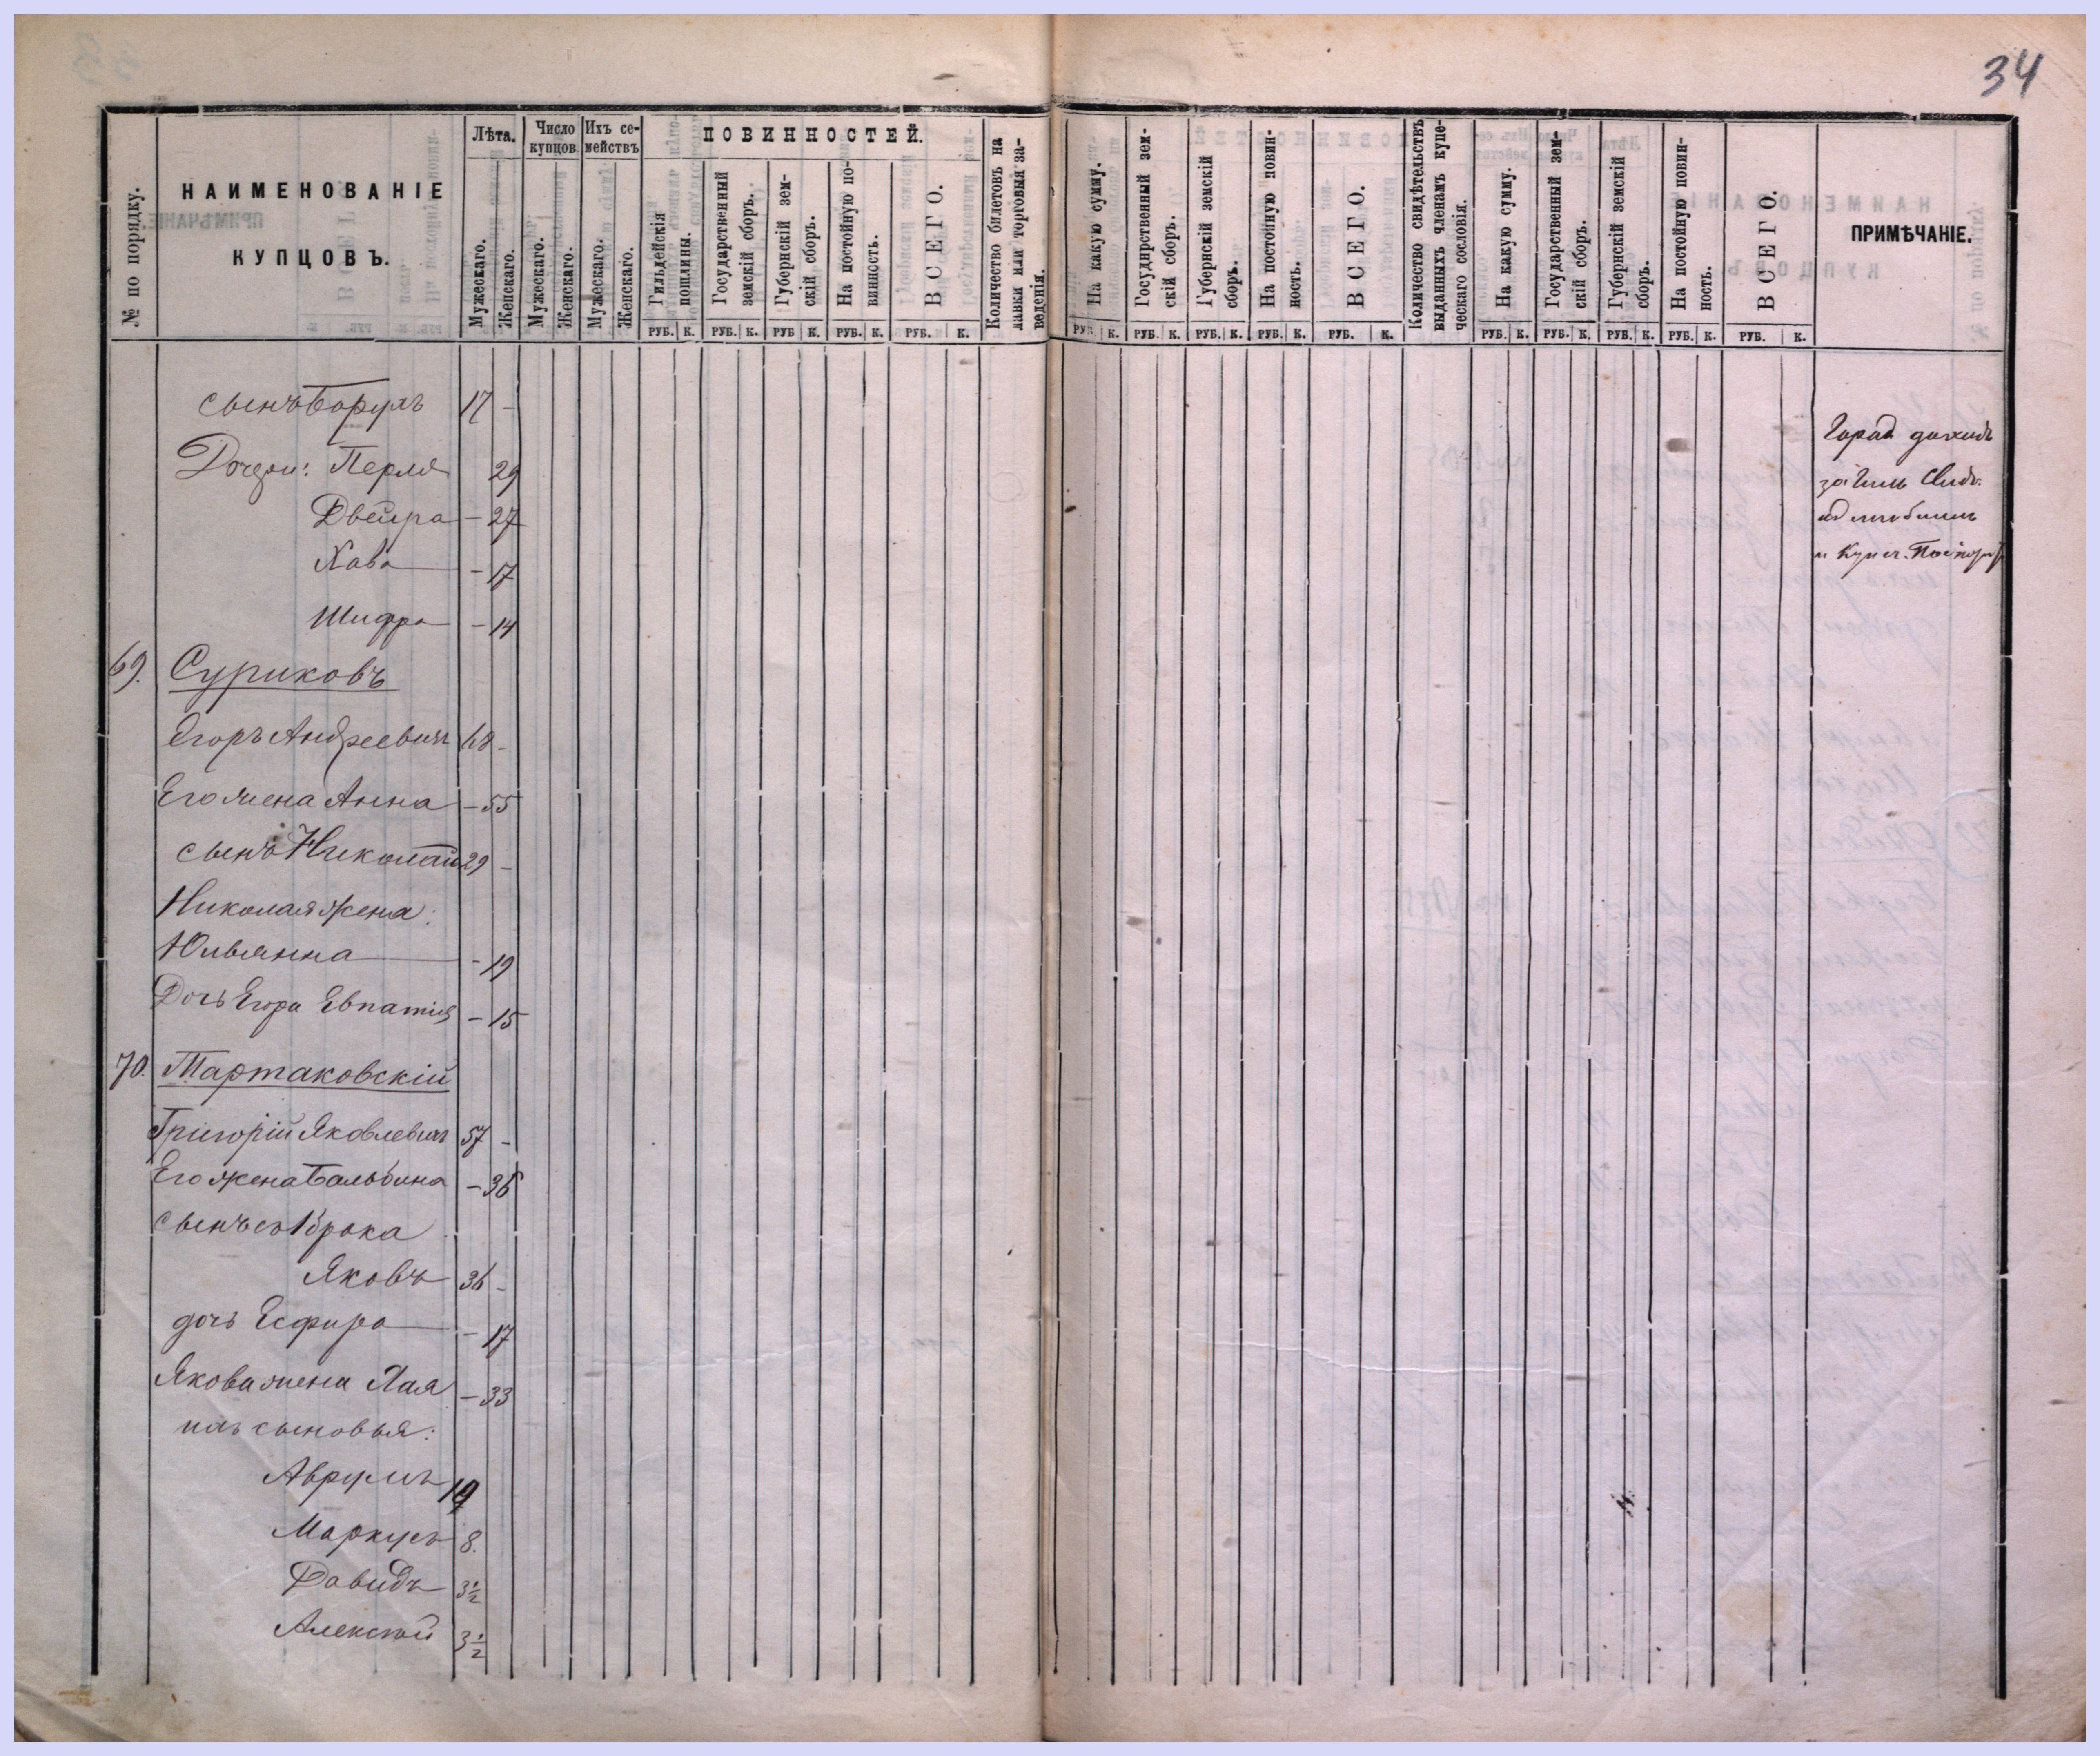 34
№ по порядку.
НАИМЕНОВАНІЕ
КУПЦОВЪ.
Лѣта.
Мужескаго.
Женскаго.
Число купцов
Мужескаго.
Женскаго.
Ихъ се-
мействъ
Мужескаго.
Женскаго.
ПОВИННОСТЕЙ.
Гильдейскія
пошлины.
Государственный
земскій сборъ.
Губернскій зем-
скій сборъ.
На постойную по-
винность.
ВСЕГО.
Количество билетовъ на
лавки или торговыя за-
веденія.
На какую сумму.
Государственный зем-
скій сборъ.
Губернскій земскій
сборъ.
На постойную повин-
ность.
ВСЕГО.
Количество свидѣтельствъ
выданныхъ членамъ купе-
ческаго сословія.
На какую сумму.
Государственный зем-
скій сборъ.
Губернскій земскій
сборъ.
На постойную повин-
ность.
ВСЕГО.
ПРИМѢЧАНІЕ.
РУБ. К. РУБ. К. РУБ К. РУБ. К. РУБ. К.
РУБ. К. РУБ. К. РУБ. К. РУБ. К. РУБ. К. РУБ. К. РУБ. К. РУБ. К. РУБ. К. РУБ. К.
сынъ Борухъ 17 -
Дочери: Перля 29
Двейра - 27
Хава - 17
Шифра - 14
69. Суриковъ
Егоръ Андреевичъ 68 -
Его жена Анна - 55
сынъ Николай 29 -
Николая жена:
Юльянна - 19
Дочь Егора Евпатія - 15
70. Тартаковскій
Григорій Яковлевичъ 57 -
Его жена Бальбина - 36
сынъ съ 1 брака
Яковъ 36 -
дочь Есфира - 17
Якова жена Хая - 33
ихъ сыновья:
Аврумъ
Маркусъ 8.
Давидъ 3½
Алексѣй 3½